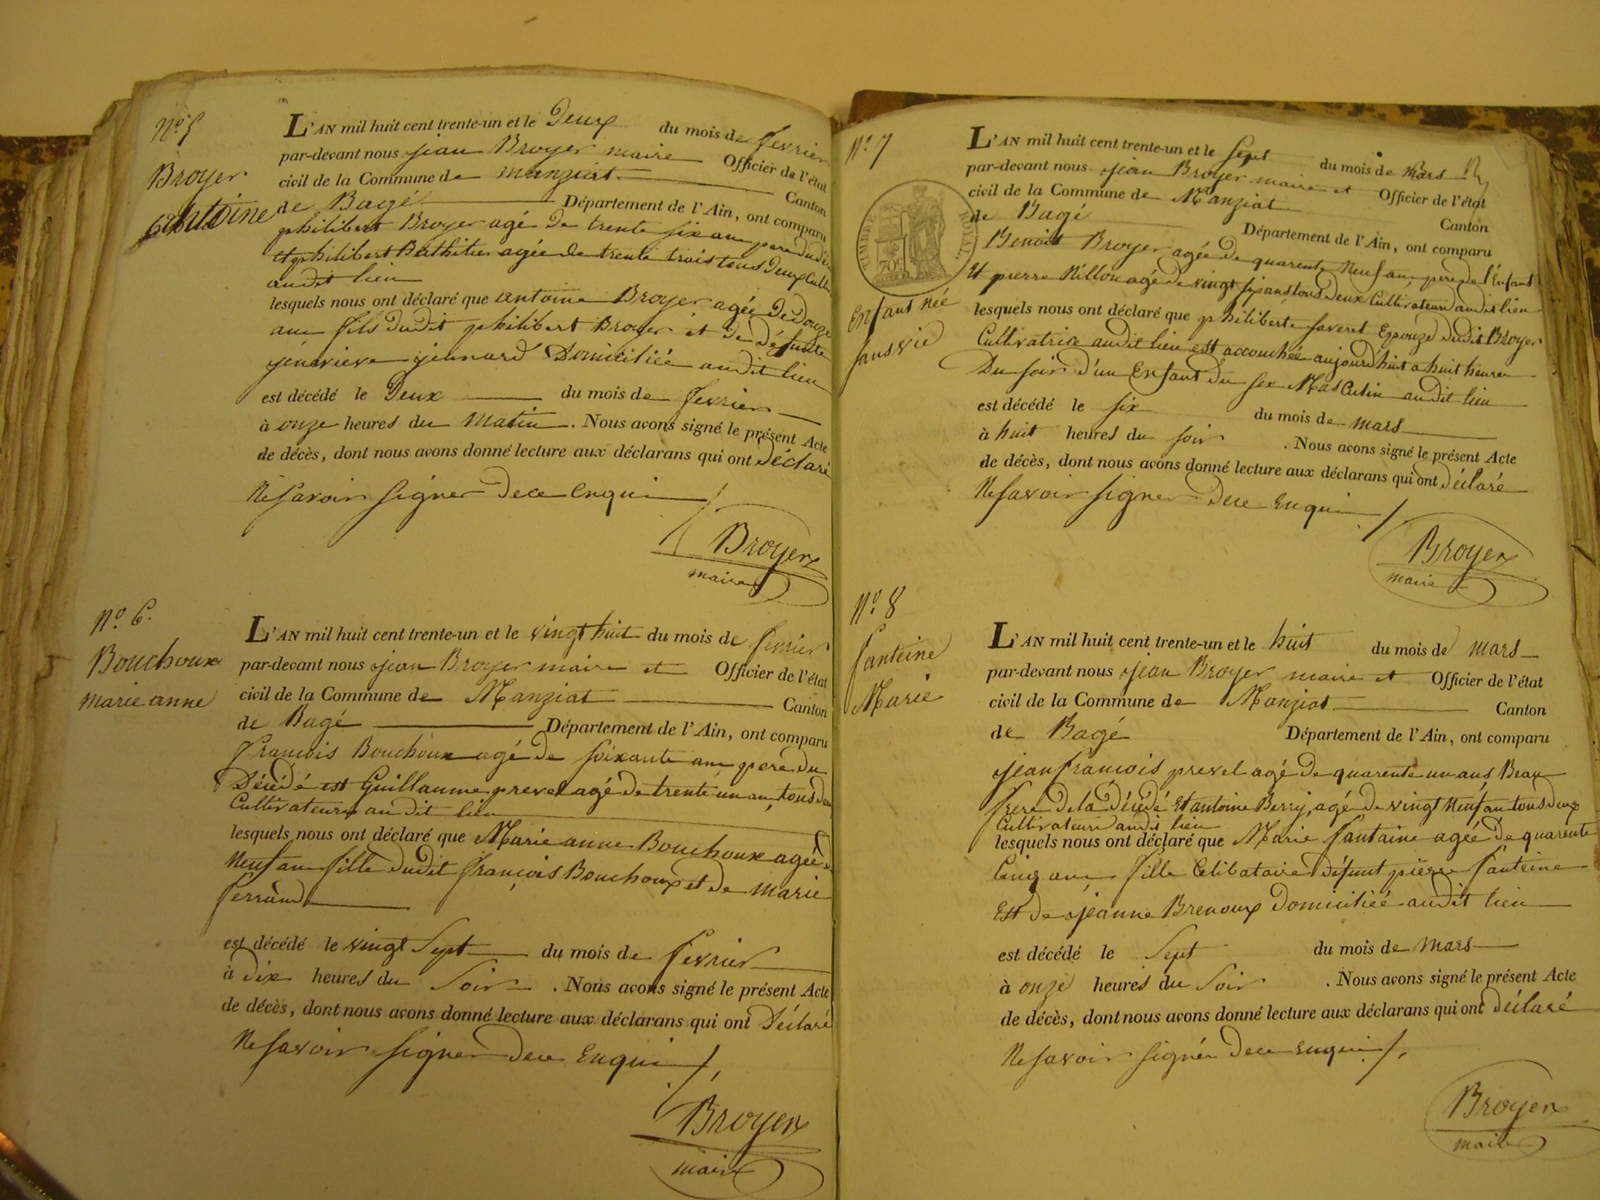 N.º 5
Broyer
antoine
L'AN mil huit cent trente-un et le Deux du mois de fevrier
par-devant nous jean Broyer maire Officier de l'état
civil de la Commune de manziat Canton
de Bagé Département de l'Ain, ont comparu
philibert Broyer agé de trente six ans pere dudit
et philibert Bathilier agée de trente trois tous Deux Cult
audit lieu
lesquels nous ont déclaré que antoine Broyer agée De douze
ans fils dudit philibert Broyer et de défunte
jenevieve jennard Domiciliée audit lieu
est décédé le Deux du mois de fevrier
à onze heures du Matin. Nous avons signé le présent Acte
de décès, dont nous avons donné lecture aux déclarans qui ont déclaré
Ne savoir signer Dece Enqui
Broyer
maire
N.º 6.
Bouchoux
marie anne
L'AN mil huit cent trente-un et le vingt huit du mois de fevrier
par-devant nous jean Broyer maire et Officier de l'état
civil de la Commune de Manziat Canton
de Bagé Département de l'Ain, ont comparu
francois Bouchoux agé de soixante ans pere du
Décédé est Guillaume prevel agé de trente un an, tous deux
Cultivateurs audit lieu
lesquels nous ont déclaré que Marie anne Bouchoux agée de
Neuf ans fille dudit francois Bouchoux et de Marie
ferrand
est décédé le vingt Sept du mois de fevrier
à dix heures du Soir. Nous avons signé le présent Acte
de décès, dont nous avons donné lecture aux déclarans qui ont Déclaré
Ne savoir signer Dece Enqui
Broyer
maire
N.º 7
TIMBRE ROYAL
70c
Enfant née
sans vie
L'AN mil huit cent trente-un et le Sept du mois de Mars
par-devant nous jean Broyer maire et Officier de l'état
civil de la Commune de Manziat Canton
de Bagé Département de l'Ain, ont comparu
Benoit Broyer agée de quarente Neuf ans pere de l'Enfant
Et pierre Nillon agé de vingt six ans tous deux Cultivateurs audit lieu
lesquels nous ont déclaré que philiberte faveret Epouze dudit Broyer
Cultivatrice audit lieu est accouchée aujourd'huit a huit heures
Du soir d'un Enfant du sex Mascutin audit lieu
est décédé le six du mois de mars
à huit heures du soir. Nous avons signé le présent Acte
de décès, dont nous avons donné lecture aux déclarans qui ont déclaré
Ne savoir signer Dece Enqui
Broyer
maire
N.º 8
fanteine
Marie
L'AN mil huit cent trente-un et le huit du mois de mars
par-devant nous jean Broyer maire et Officier de l'état
civil de la Commune de Manziat Canton
de Bagé Département de l'Ain, ont comparu
jean francois prevel agé de quarente un ans Beau
frere de la décédé Et antoine Berry, agé de vingt Neuf an tous deux
Cultivateurs audit lieu
lesquels nous ont déclaré que Marie fantaine agée de quarente
Cinq ans fille Celibataire défunt pierre fanteine
Est de jeanne Brenoux domiciliée audit lieu
est décédé le Sept du mois de mars
à onze heures du Soir. Nous avons signé le présent Acte
de décès, dont nous avons donné lecture aux déclarans qui ont déclaré
Ne savoir signer Dece Enqui
Broyer
maire